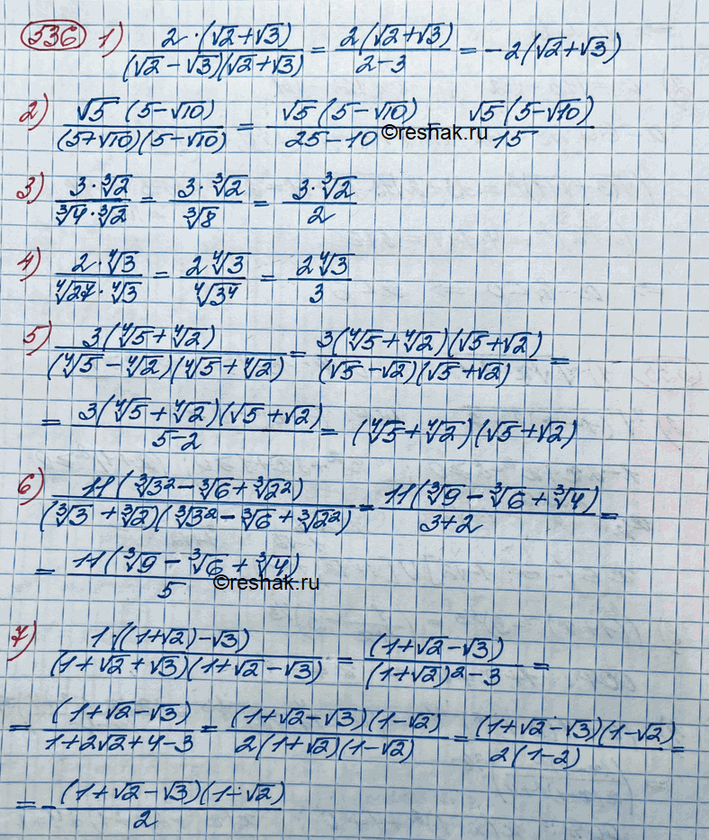 536 1) 2·(√2+√3)/(√2−√3)(√2+√3) = 2(√2+√3)/2−3 = −2(√2+√3)
2) √5 (5−√10)/(5+√10)(5−√10) = √5 (5−√10)/25−10 = √5 (5−√10)/15
©reshak.ru
3) 3·∛2/∛4·∛2 = 3·∛2/∛8 = 3·∛2/2
4) 2·∜3/∜27·∜3 = 2∜3/∜3⁴ = 2∜3/3
5) 3(∜5+∜2)/(∜5−∜2)(∜5+∜2) = 3(∜5+∜2)(√5+√2)/(√5−√2)(√5+√2) =
= 3(∜5+∜2)(√5+√2)/5−2 = (∜5+∜2)(√5+√2)
6) 11(∛3²−∛6+∛2²)/(∛3+∛2)(∛3²−∛6+∛2²) = 11(∛9−∛6+∛4)/3+2 =
= 11(∛9−∛6+∛4)/5
©reshak.ru
7) 1·((1+√2)−√3)/(1+√2+√3)(1+√2−√3) = (1+√2−√3)/(1+√2)²−3 =
= (1+√2−√3)/1+2√2+4−3 = (1+√2−√3)(1−√2)/2(1+√2)(1−√2) = (1+√2−√3)(1−√2)/2(1−2) =
= −(1+√2−√3)(1−√2)/2